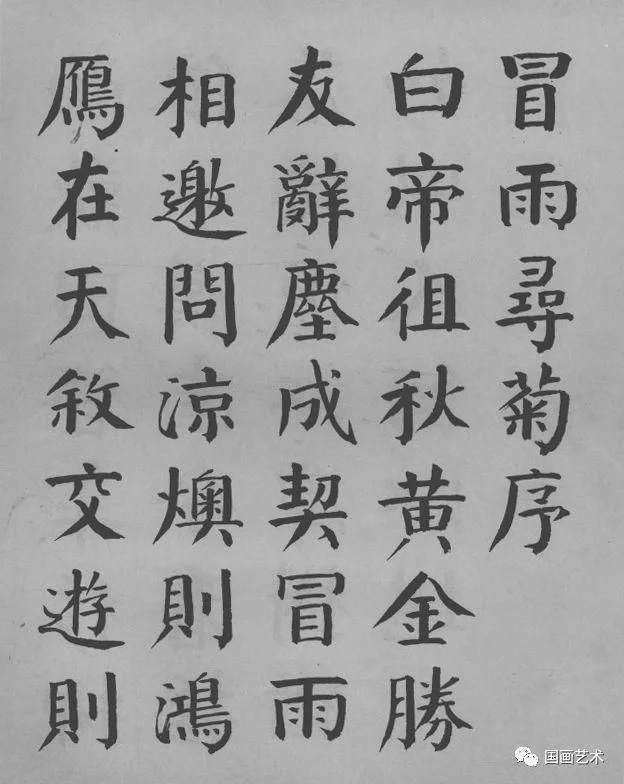 冒雨尋菊序
白帝徂秋黄金勝
友辭塵成契冒雨
相邀問涼燠則鴻
鴈在天敘交遊則
国画艺术